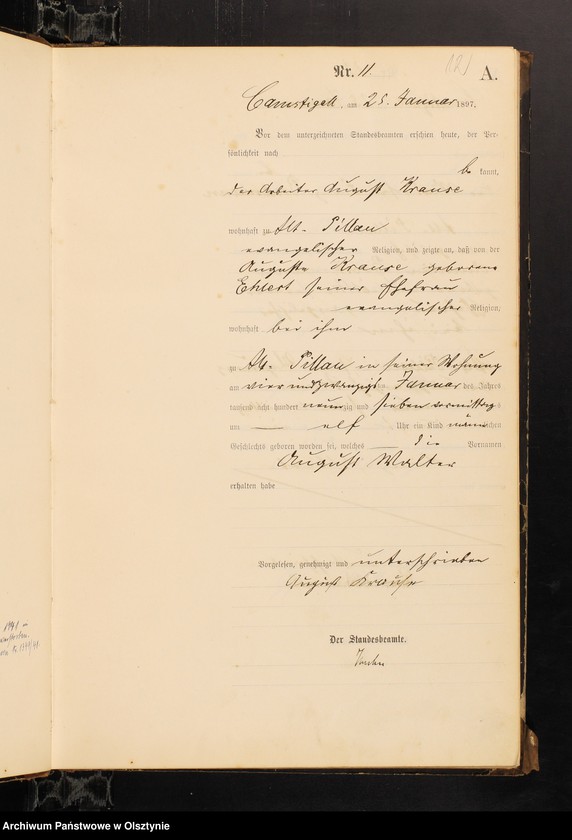 Nr. 11.
(12)
A.
Camstigall, am 25. Januar 1897.
Vor dem unterzeichneten Standesbeamten erschien heute, der Per-
sönlichkeit nach
be kannt,
der Arbeiter August Krause
wohnhaft zu Alt. Pillau
evangelischer Religion, und zeigte an, daß von der
Auguste Krause geborene
Ehlert seiner Ehefrau
evangelischer Religion,
wohnhaft bei ihm
zu Alt. Pillau in seiner Wohnung
am vier und zwanzigs ten Januar des Jahres
tausend acht hundert neunzig und sieben vormittags
um elf Uhr ein Kind männlichen
Geschlechts geboren worden sei, welches die Vornamen
August Walter
erhalten habe
Vorgelesen, genehmigt und unterschrieben
August Krause
Der Standesbeamte.
1941
Archiwum Państwowe w Olsztynie